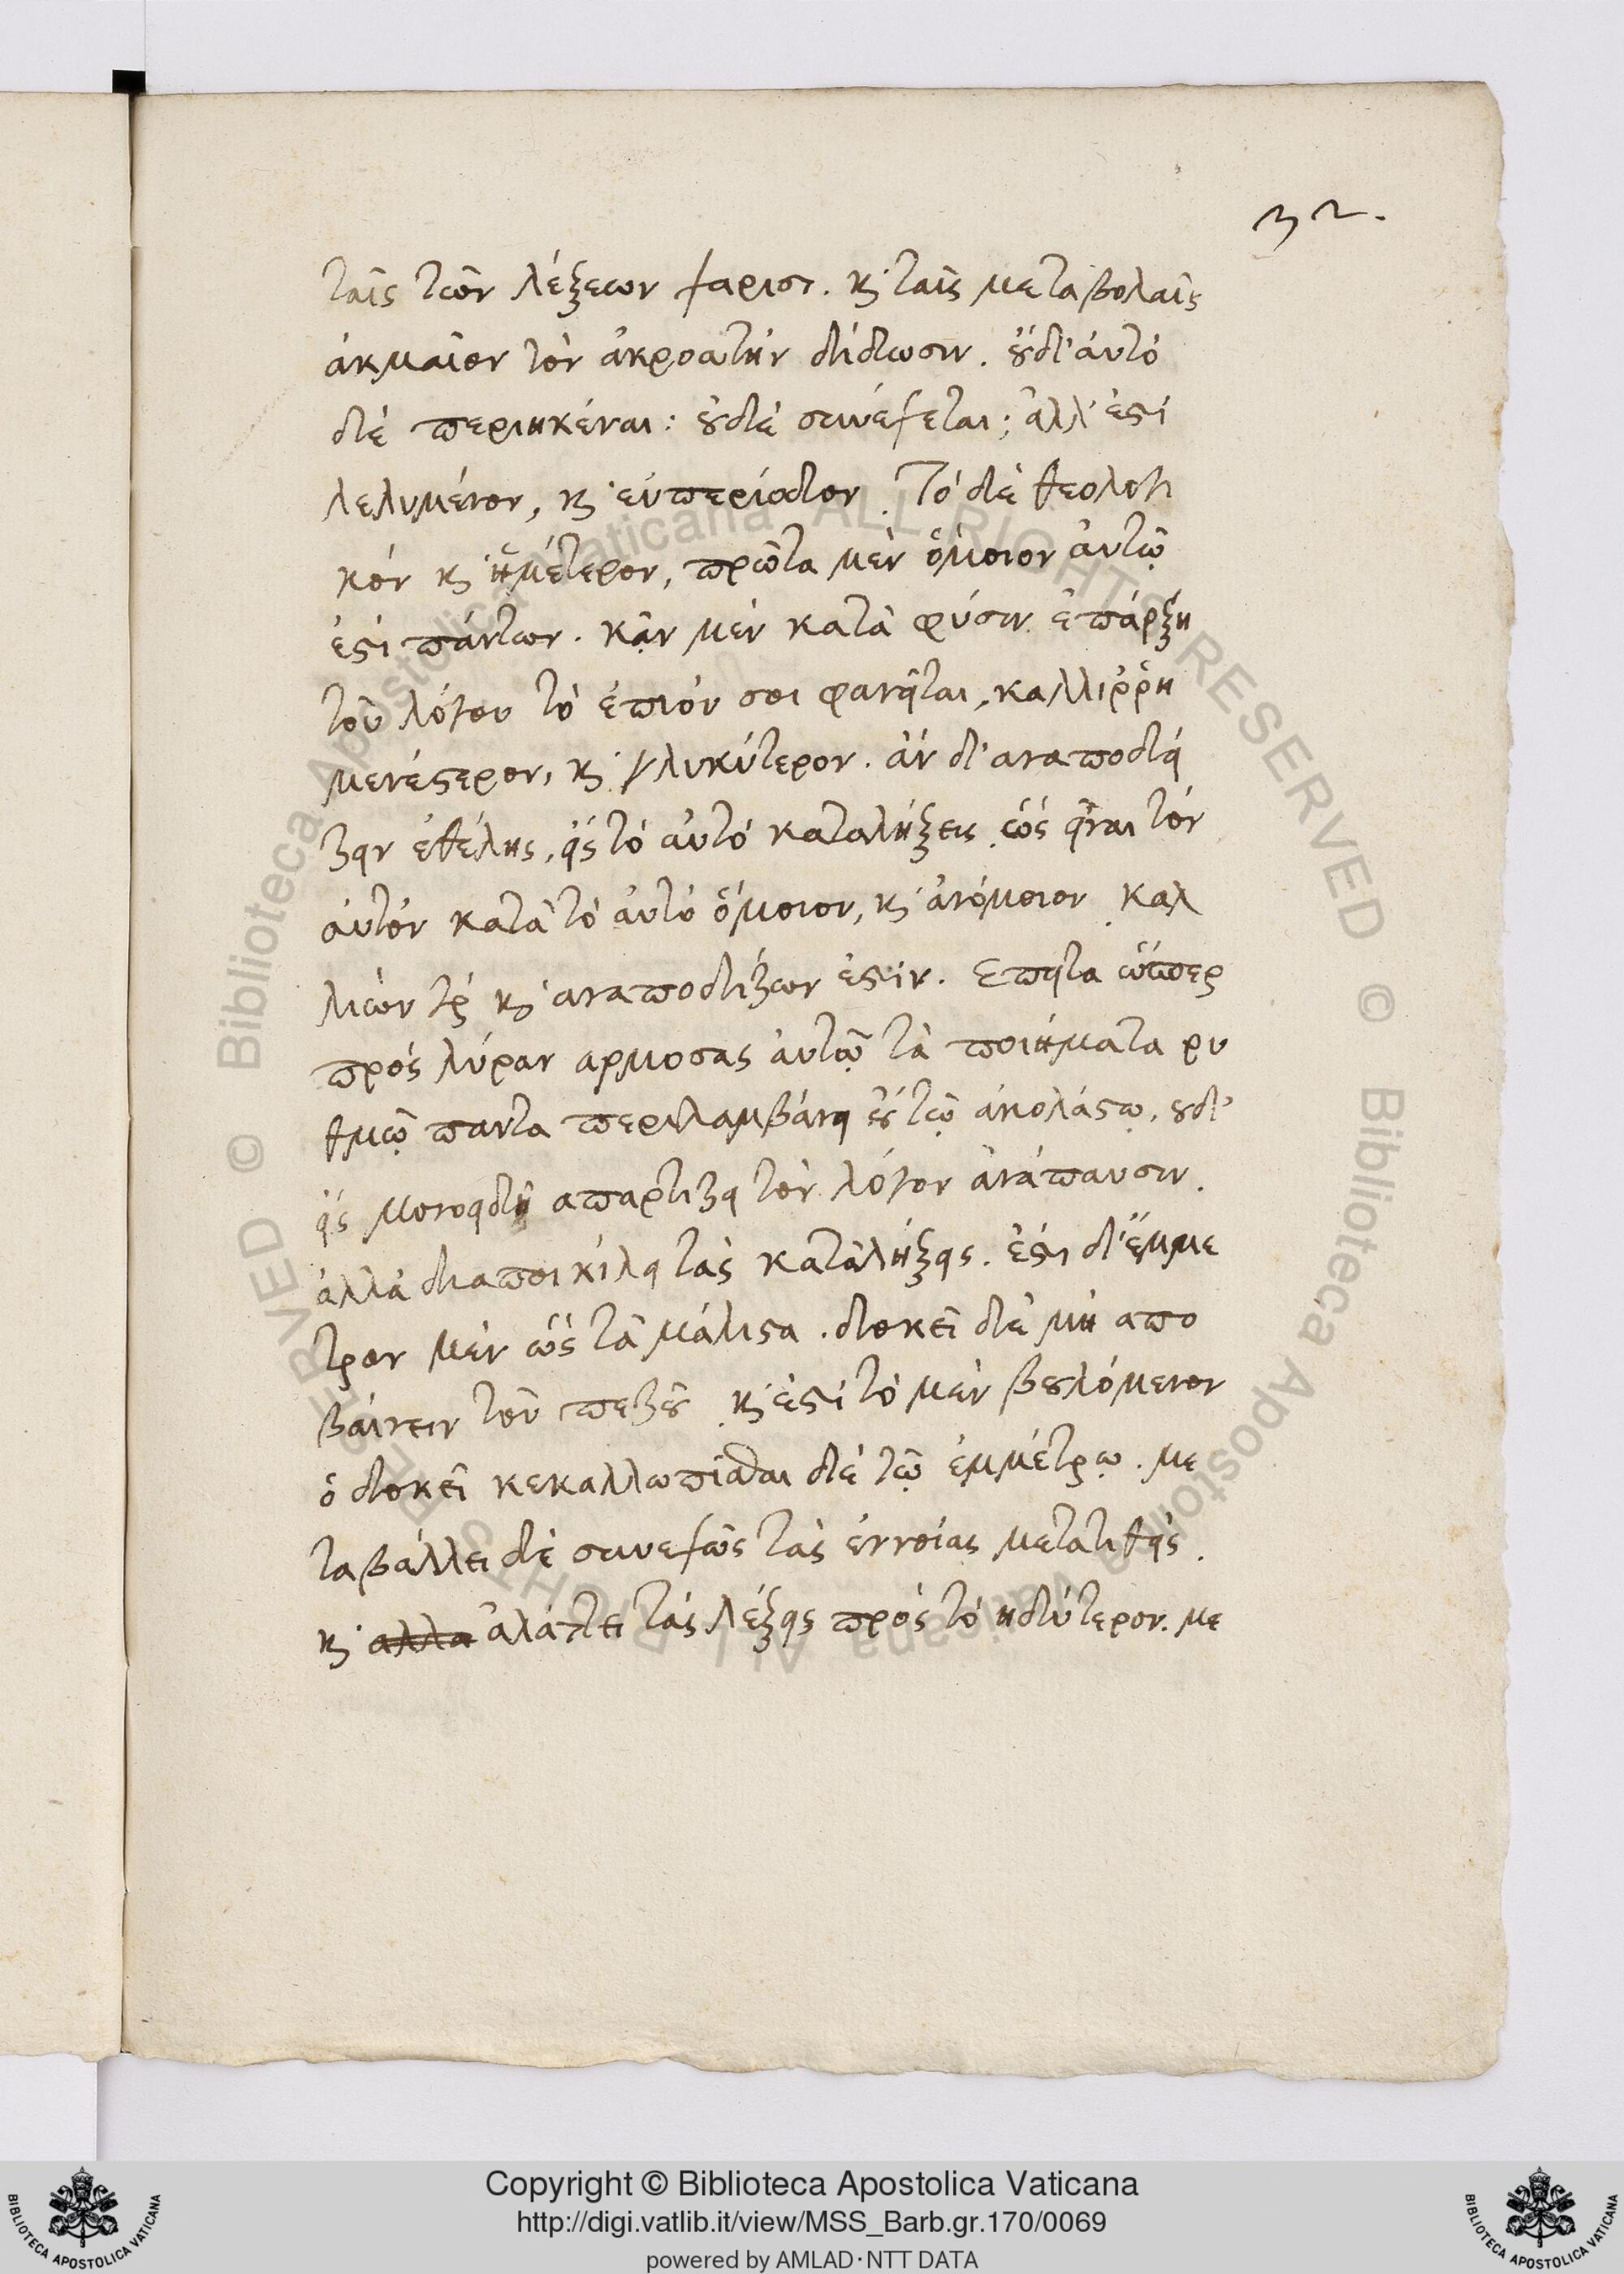 32.
ταῖς τῶν λέξεων χάρισι. καὶ ταῖς μεταβολαῖς
ἀκμαῖον τὸν ἀκροατὴν δίδωσιν. οὐδ' ἀυτὸ
δὲ περιηκέναι: οὐδὲ συνέχεται; ἀλλ' ἐστὶ
λελυμένον, καὶ ἐυπερίοδον. Τὸ δὲ θεολογι
κόν καὶ ἡμέτερον, πρῶτα μὲν ὅμοιον ἀυτῷ
ἐστὶ πάντων. κᾂν μὲν κατὰ φύσιν ἐπάρξῃ
τοῦ λόγου τὸ ἐπιόν σοι φανεῖται, καλλιῤῥη
μενέστερον, καὶ γλυκύτερον. ἀν δ' αναποδί
ζειν ἐθέλης, εἰς τὸ ἀυτὸ καταλήξεις. ὡς εἶναι τὸν
ἀυτὸν κατὰ τὸ ἀυτὸ ὅμοιον, καὶ ἀνόμοιον. καλ
λιών τε καὶ αναποδίζων ἐστίν. Ἐπειτα ὥσπερ
πρὸς λύραν αρμοσας ἀυτῷ τὰ ποιήματα ρυ
θμῷ παντα περιλαμβάνει οὐ τῷ ἀκολάστῳ. οὐδ'
εἰς μονοειδῆ απαρτιζει τὸν λόγον ἀνάπαυσιν.
ἀλλὰ διαποικίλει τὰς καταλήξεις. ἐστι δ' ἔμμε
τρον μὲν ὡς τὰ μάλιστα. δοκεῖ δὲ μὴ απο
βάινειν τοῦ πεζοῦ. καὶ ἐστὶ τὸ μὲν βουλόμενον
ὁ δοκεῖ κεκαλλωπίσθαι δὲ τῷ ἐμμέτρῳ. με
ταβάλλει δὲ συνεχῶς τὰς ἐννοίας μετατιθεὶς.
καὶ αλλα ἀλάττει τὰς λέξεις πρὸς τὸ ηδύτερον. με
Copyright © Biblioteca Apostolica Vaticana
http://digi.vatlib.it/view/MSS_Barb.gr.170/0069
powered by AMLAD·NTT DATA